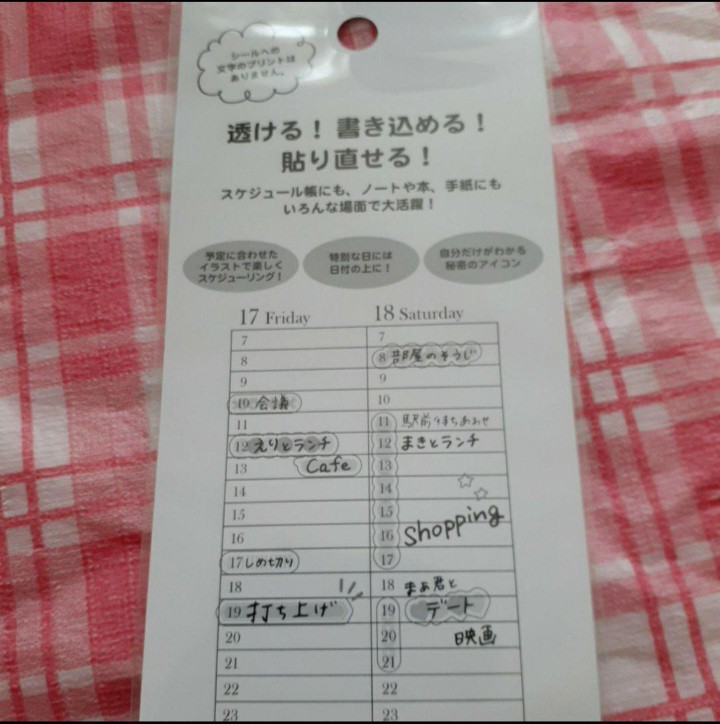 シールへの
文字のプリントは
ありません。
透ける！書き込める！
貼り直せる！
スケジュール帳にも、ノートや本、手紙にも
いろんな場面で大活躍！
予定に合わせた
イラストで楽しく
スケジューリング！
特別な日には
日付の上に！
自分だけがわかる
秘密のアイコン
17 Friday
7
8
9
10 会議
11
12 えりとランチ
13 Cafe
14
15
16
17 しめ切り
18
19 打ち上げ
20
21
22
23
18 Saturday
7
8 部屋のそうじ
9
10
11 駅前待ちあわせ
12 まきとランチ
13
14
15
16 Shopping
17
18 まぁ君と
19 デート
20 映画
21
22
23